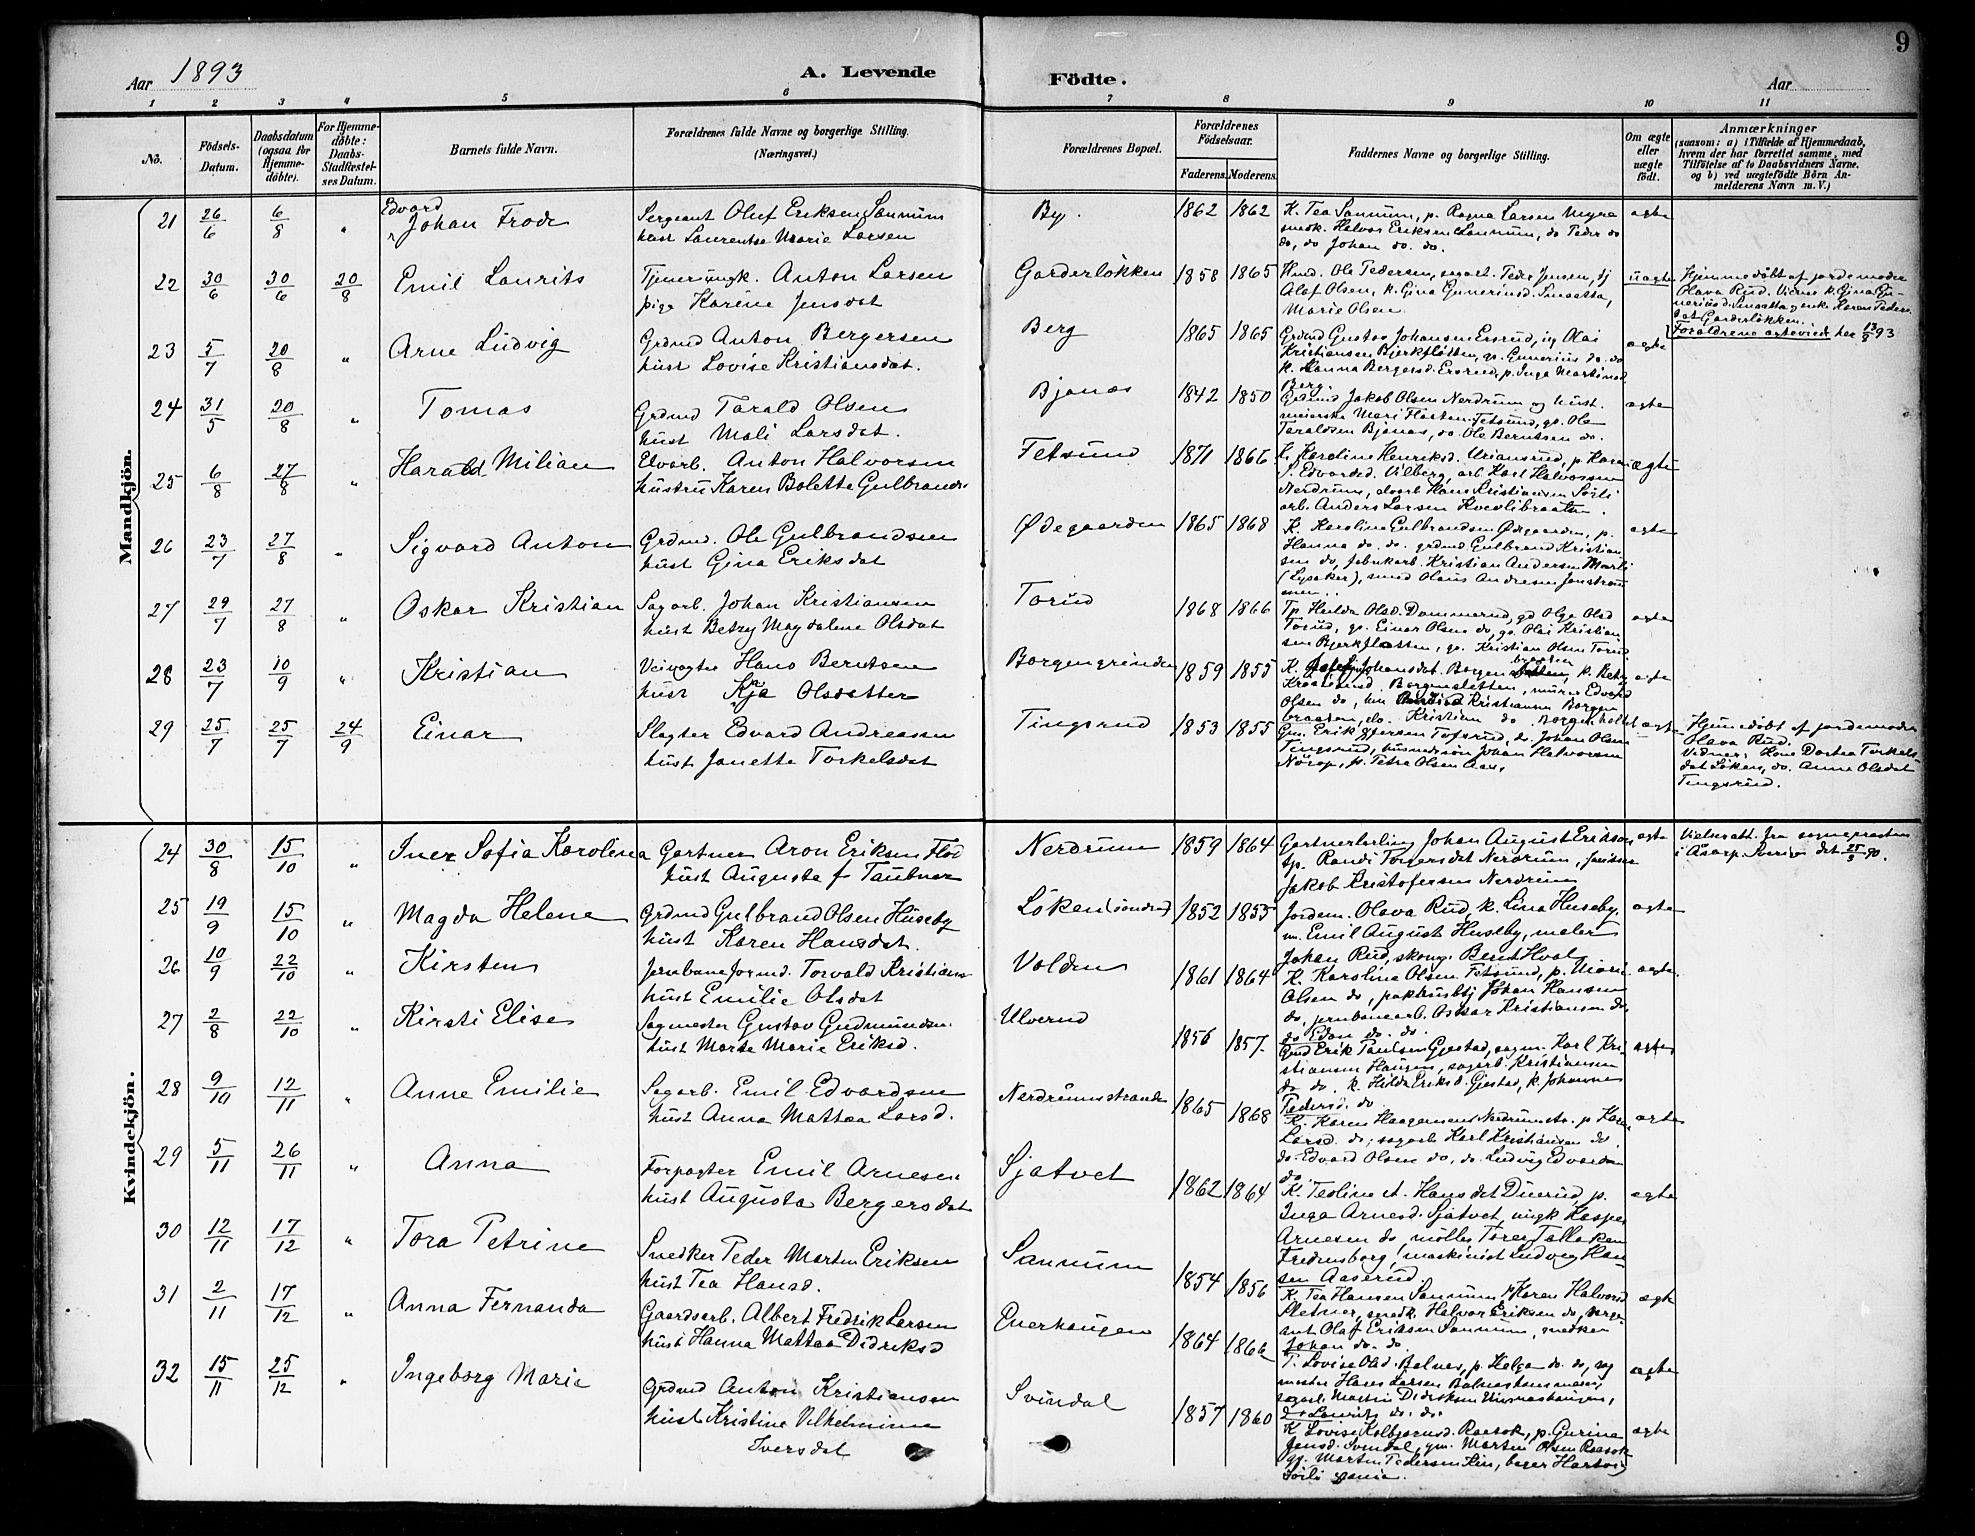 9
Aar 1893
A. Levende Födte.
Aar
1 2 3 4 5 6 7 8 9 10 11
No.
Födsels-Datum.
Daabsdatum (ogsaa for Hjemme-döbte).
For Hjemme-döbte: Daabs-Stadfæstel-ses Datum.
Barnets fulde Navn.
Forældrenes fulde Navne og borgerlige Stilling.
(Næringsvei.)
Forældrenes Bopæl.
Forældrenes Födselsaar.
Faderens. Moderens.
Faddernes Navne og borgerlige Stilling.
Om ægte eller uægte födt.
Anmærkninger
(saasom: a) i Tilfælde af Hjemmedaab, hvem der har forrettet samme, med Tilföielse af to Daabsvidners Navne. og b) ved uægtefödte Börn An-melderens Navn m. V.)
Mandkjön.
21 26/6 6/8 " Edvard Johan Frode
Sergeant Oluf Eriksen Sannum
hust Laurentse Marie Larsen
By. 1862 1862
K. Tea Sannum, p. Ragna Larsen Myra
snedk. Halvor Eriksen Sannum, do Peder do
do, do Johan do. do.
ægte
22 30/6 30/6 20/8 Emil Laurits
Tjener ungk. Anton Larsen
pige Karine Jensdat
Garderløkken 1858 1865
Olaf Olsen, k. Gina Guneriusd. Smaatta,
Marie Olsen
uægte
Hjemmedöbt af jordemoder
Olava Rud.
Forældrene ægteviede her 13/8 93
23 5/7 20/8 " Arne Ludvig
Grdmd Anton Bergersen
hust Lovise Kristiansdat.
Berg 1865 1865
Grdmd Gustav Johansen Ersrud, ug Olai
Kristiansen Bjerkfløtten, gs. Gunerius do. do
k. Hanna Bergersd. Ersrud, p. Inga Martinsd
Berg.
ægte
24 31/5 20/8 " Tomas
Grdmd Tarald Olsen
hust Mali Larsdat.
Bjanæs 1842 1850
Grdmd Jakob Olsen Nerdrum og hust.
Taraldsen Bjanæs, do. Ole Berntsen do.
ægte
25 6/8 27/8 " Harald Milian
Elvarb. Anton Halvorsen
hustru Karen Bolette Gulbrands.
Fetsund 1871 1866
k. Karoline Henriksd. Uriansrud, p. Karen
S. Edvardsd. Vilberg, arb Karl Halvorsen
Nerdrum, elvarb Hans Kristiansen Sørli
arb. Anders Larsen Kvevlibraaten.
ægte
26 23/7 27/8 " Sigvard Anton
Grdmd. Ole Gulbrandsen
hust Gina Eriksdat
Ødegaarden 1865 1868
K. Karoline Gulbrandsen Ødegaarden, p.
Hanna do. do. grdmd Gulbrand Kristian
sen do, fabrikarb. Kristian Andersen Marli
(Lysaker), smed Olaus Andresen
ægte
27 29/7 27/8 " Oskar Kristian
Sagarb. Johan Kristiansen
hust Betzy Magdalene Olsdat
Torud 1868 1866
Tp. Hulda Olsd. Dammerud, gd Olga Olsd
Torud, gs. Einar Olsen do, gs. Olai Kristian
sen Bjerkfløtten, gs. Kristian Olsen Torud
ægte
28 23/7 10/9 " Kristian
Veivogter Hans Berntsen
hust Kja Olsdatter
Borgengrinden 1859 1855
Olsen do,
braaten, do. Kristian do Borgenholtet
ægte
29 25/7 25/7 24/9 Einar
Slagter Edvard Andreasen
hust Janette Torkelsdat
Tingsrud 1853 1855
Tingsrud, husmdsøn Johan Halvorsen
Nørop, p. Petra Olsen Aas.
ægte
Hjemmedöbt af jordemoder
Olava Rud.
Vidner: Kone Dortea Torkels-
dat Løken, do. Anne Olsdat
Tingsrud.
Kvindekjön.
24 30/8 15/10 " Inez Sofia Karolina
Gartner Aron Eriksen Flod
hust Augusta f Taubner
Nerdrum 1859 1864
Gartnerlærling Johan August Erikson
tp. Randi Torgersdat Nerdrum,
Jakob Kristofersen Nerdrum
ægte
Vielsesatt. fra sognepresten
i Åsarp, Sverige det 25/3 90.
25 19/9 15/10 " Magda Helene
Grdmd Gulbrand Olsen Huseby
hust Karen Hansdat.
Løken (søndre) 1852 1855
Jordem. Olava Rud, k. Lina Huseby,
m. Emil August Huseby, maler
Johan Rud, skomg. Bernt Hval
ægte
26 10/9 22/10 " Kirsten
Jernbaneformd. Torvald Kristians.
hust Emilie Olsdat
Volden 1861 1864
K. Karoline Olsen Fetsund, p. Marie
Olsen do, pakhusbtj Johan Hansen
do, jernbanearb. Oskar Kristiansen do,
do Edon do. do.
ægte.
27 2/8 22/10 " Kirsti Elise
Sagmester Gustav Gudmunds.
hust Marte Marie Eriksd.
Ulverud 1856 1857
Grmd Erik Paulsen Gjestad, sagm. Karl Kri
stiansen Haugen, sagarb. Kristiansen
do do, k. Hilda Eriksd. Gjestad, k. Johanne
Pedersd. do
ægte
28 9/10 12/11 " Anne Emilie
Sagarb. Emil Edvardsen
hust Anna Mattea Larsd.
Nerdrumsstranden 1865 1868
K. Karen Haagensen Nerdrumstr. p Karen
Larsd. do, sagarb Karl Kristiansen do
do Edvard Olsen do, do. Ludvig Edvardsen
do.
ægte
29 5/11 26/11 " Anna
Forpagter Emil Arnesen
hust Augusta Bergersdat
Sjatvet 1862 1864
K. Teoline A. Hansdat Duerud, p.
Inga Arnesd. Sjatvet, ungk Kasper
Arnesen do, møller Tores Tallaksen
Fredensborg, maskinist Ludvig Han-
sen Aaserud.
ægte
30 12/11 17/12 " Tora Petrine
Snedker Peder Morten Eriksen
hust Tea Hansd.
Sannum 1854 1856
K. Tea Hansen Sannum, Karen Halvorsd
Pletner, snedk. Halvor Eriksen do, serge-
ant Olaf Eriksen Sannum, snedker
Johan do. do.
ægte
31 2/11 17/12 " Anna Fernanda
Gaardsarb. Albert Fredrik Larsen
hust Hanna Mattea Didriksd
Enerhaugen 1864 1866
T. Lovise Olsd. Balnes, p. Helga do. do, sag
mester Hans Larsen
sagarb. Martin Didriksen
do Lauritz do. do.
ægte
32 15/11 25/12 " Ingeborg Marie
Grdmd Anton Kristiansen
hust Kristine Vilhelmine
Iversdat
Svindal 1857 1860
K Lovise Kolbjørnsd. Raasok, p. Gurine
Jensd. Svindal, gm. Martin Olsen Raasok
gg. Martin Pedersen Hen, bager Hartvig
Sörli
ægte